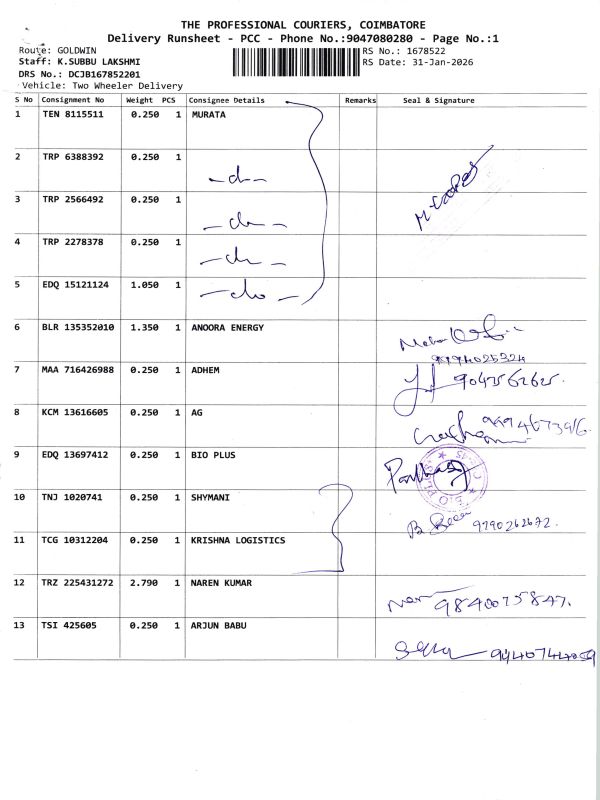 THE PROFESSIONAL COURIERS, COIMBATORE
Delivery Runsheet - PCC - Phone No.:9047080280 - Page No.:1
Route: GOLDWIN
RS No.: 1678522
Staff: K.SUBBU LAKSHMI
RS Date: 31-Jan-2026
DRS No.: DCJB167852201
Vehicle: Two Wheeler Delivery
S No Consignment No Weight PCS Consignee Details Remarks Seal & Signature
1 TEN 8115511 0.250 1 MURATA
2 TRP 6388392 0.250 1
3 TRP 2566492 0.250 1
4 TRP 2278378 0.250 1
5 EDQ 15121124 1.050 1
6 BLR 135352010 1.350 1 ANOORA ENERGY
7 MAA 716426988 0.250 1 ADHEM 9047562625.
8 KCM 13616605 0.250 1 AG
9 EDQ 13697412 0.250 1 BIO PLUS
10 TNJ 1020741 0.250 1 SHYMANI
9790262672.
11 TCG 10312204 0.250 1 KRISHNA LOGISTICS
12 TRZ 225431272 2.790 1 NAREN KUMAR 9840075847.
13 TSI 425605 0.250 1 ARJUN BABU